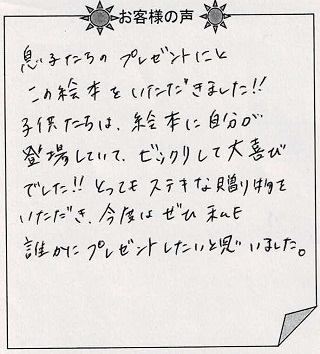 お客様の声
息子たちの プレゼントにと
この絵本を いただきました!!
子供たちは、絵本に自分が
登場していて、ビックリして大喜び
でした!! とってもステキな贈り物を
いただき、今度は ぜひ 私も
誰かに プレゼントしたいと思いました。